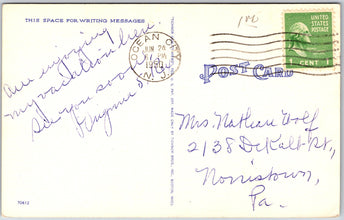 THIS SPACE FOR WRITING MESSAGES
Am enjoying
my vacation here.
See you soon
OCEAN CITY
JUN 28
PM
N.J.
UNITED STATES
POSTAGE
1 CENT 1
POST CARD
Mrs. Nathan Wolf
2138 DeKalb St.,
Norristown,
Pa.
70412